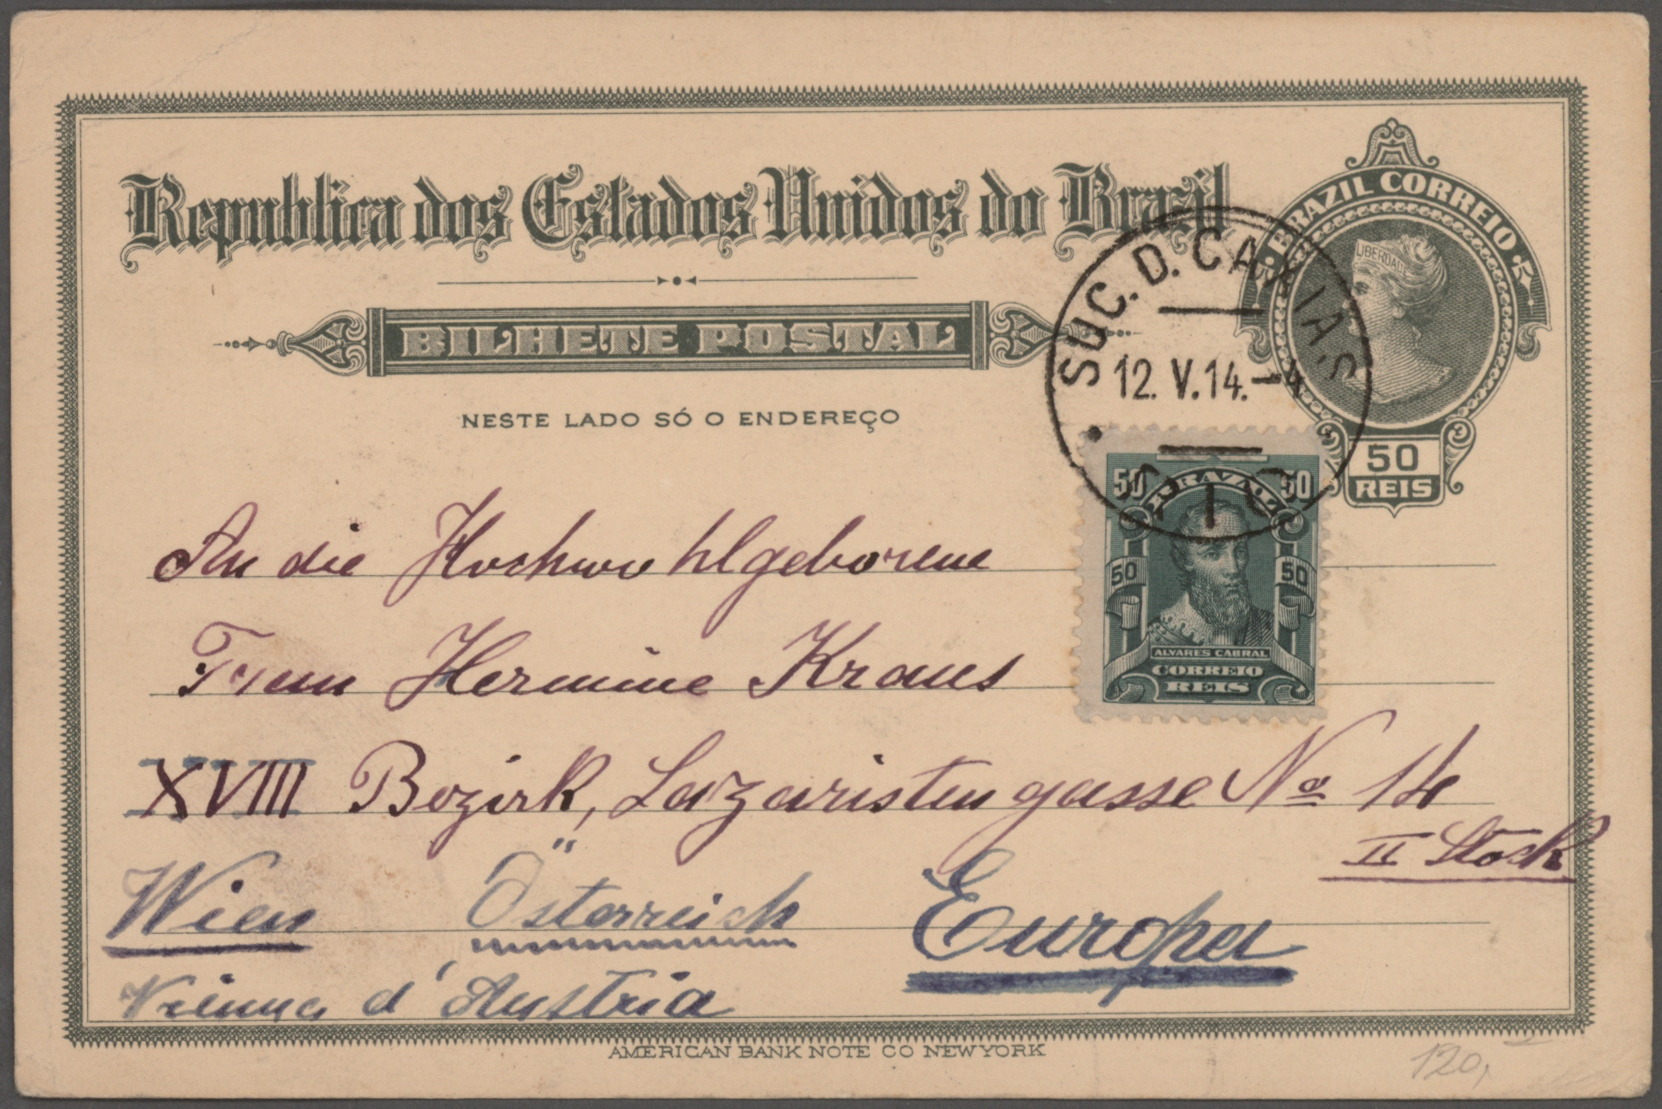 Republica dos Estados Unidos do Brazil
BRAZIL CORREIO
LIBERDADE
BILHETE POSTAL
NESTE LADO SÓ O ENDEREÇO
SUC. D. CAXIAS
12. V. 14. - 4
RIO
50
REIS
50 50
50 50
ALVARES CABRAL
CORREIO
REIS
An die Hochwohlgeborene
Frau Hermine Kraus
XVIII Bezirk, Lazaristengasse No 14
II Stock
Wien Österreich Europa
Vienna d'Austria
AMERICAN BANK NOTE CO NEW YORK
120,